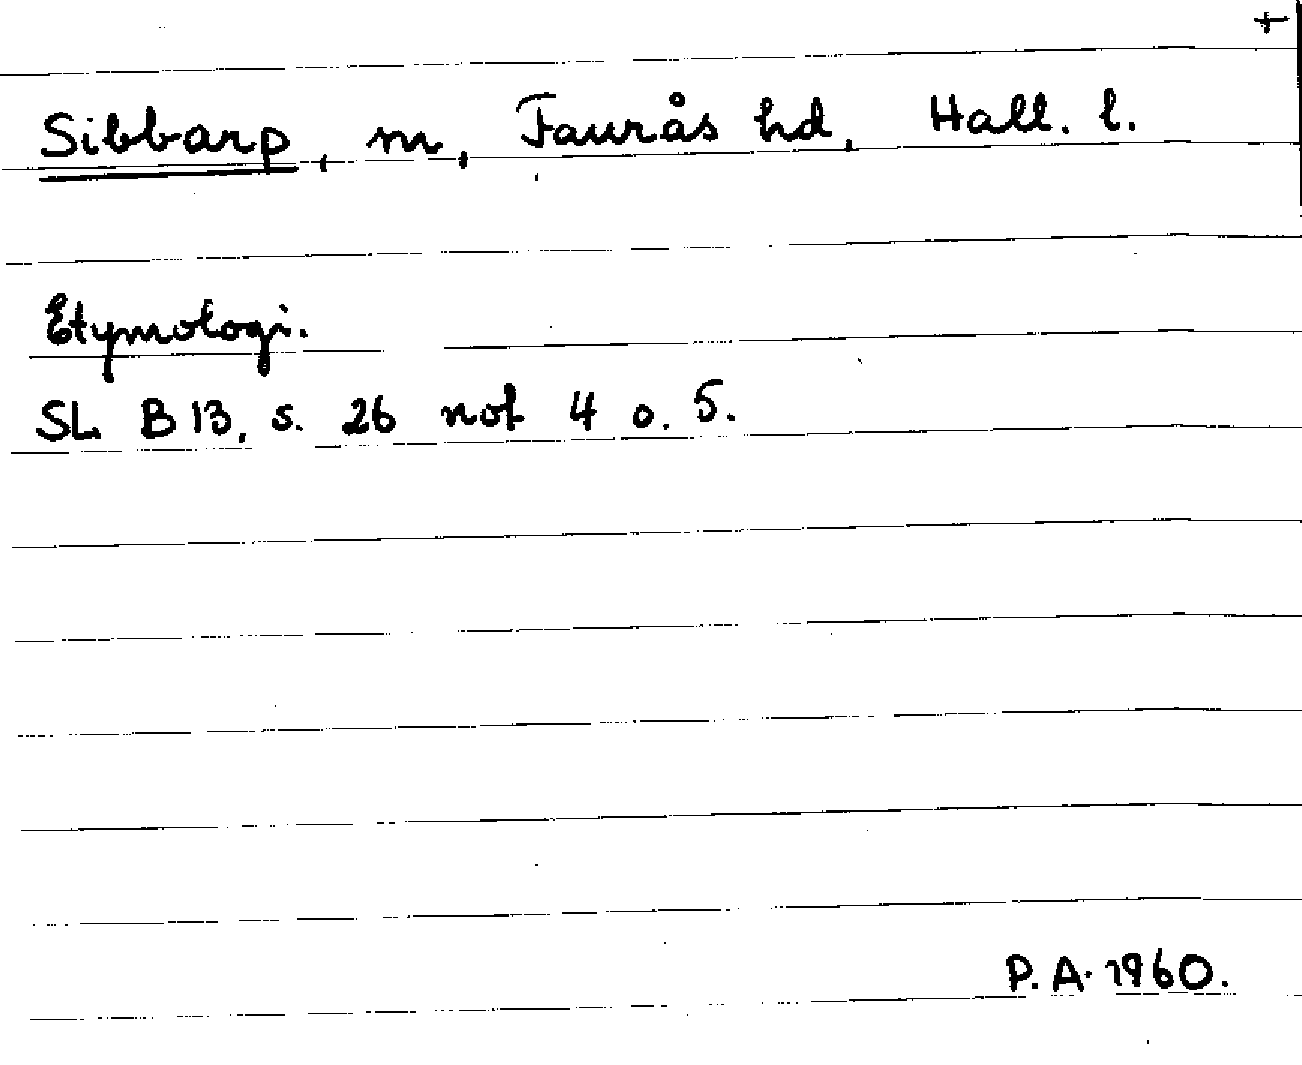 +
Sibbarp, m, Faurås hd, Hall. l.
Etymologi.
SL B 13, s. 26 not 4 o. 5.
P. A. 1960.